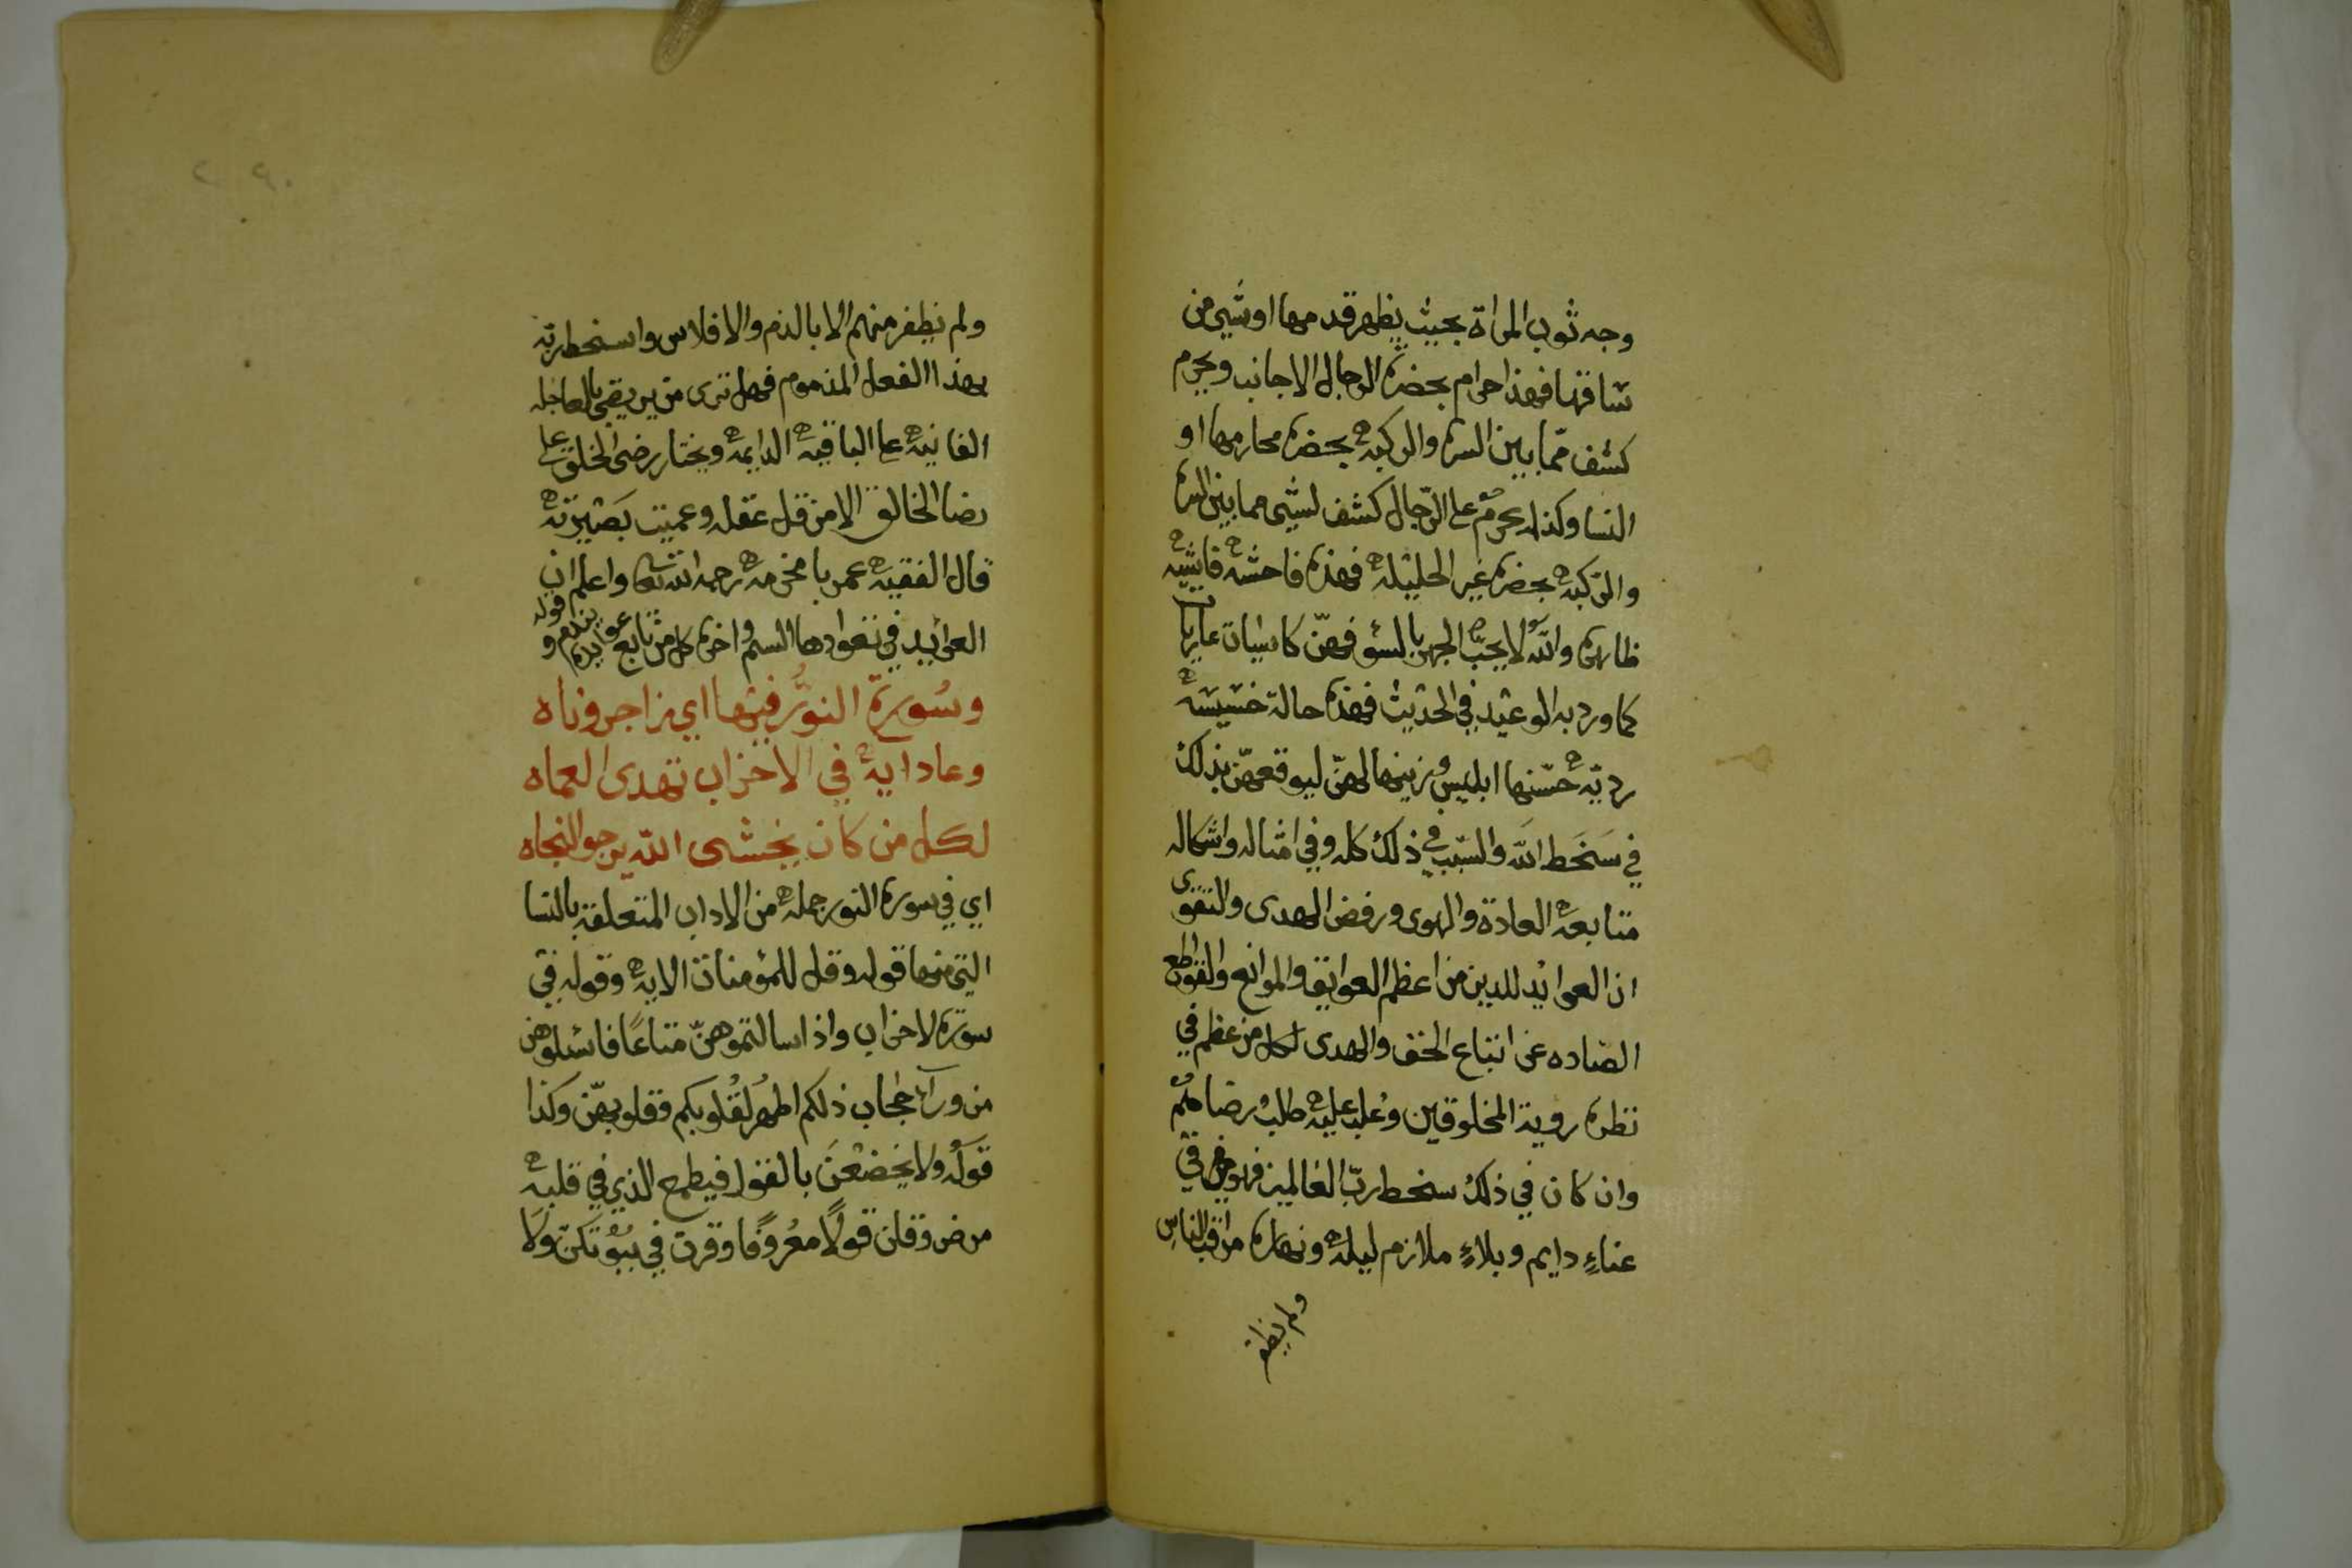 وجه ثوب المراة بحيث يظهر قدمها او شي من
ساقها فهذا حرام بحضرة الرجال الاجانب ويحرم
كشف مما بين السرة والركبه بحضرة محارمها او
النسا وكذا يحرم على الرجال كشف لشي مما بين السرة
والركبه بحضرة غير الحليله فهذه فاحشه فاشيه
ظاهرة والله لا يحب الجهر بالسؤ فهن كاسيات عاريات
كما ورد به الوعيد في الحديث فهذه حالة خسيسه
رديه حسنها ابليس وزينها لهن ليوقعهن بذلك
في سخط الله والسبب في ذلك كله وفي امثاله واشكاله
متابعه العادة والهوى ورفض الهدى والتقوى
ان العوائد للدين من اعظم العوايق والموانع والقواطع
الصاده عن اتباع الحق والهدى لكل من عظم في
نظره روية المخلوقين وغلب عليه طلب رضاهم
وان كان في ذلك سخط رب العالمين فهو من في
عناء دايم وبلاء ملازم ليله ونهاره مراقب الناس
ولم يظفر
ولم يظفر منهم الا بالذم والافلاس واسخط ربه
بهذا الفعل المذموم فهل ترى من يرضي بالعاجله
الفانيه على الباقيه الدايمه ويختار رضى الخلق على
رضا الخالق الا من قل عقله وعميت بصيرته
قال الفقيه عمر بامخرمه رحمه الله تعالى واعلم ان
العوائد في تعوادها السم واخره كل من تابع عوايده يندم وقوله
وسورة النور فيها اي زاجر وناه
وعاد ايه في الاحزاب تهدى العماه
لكل من كان يخشى الله يرجو النجاه
اي في سورة النور جمله من الاداب المتعلقة بالنسا
التي منها قوله وقل للمؤمنات الايه وقوله في
سورة الاحزاب واذا سالتموهن متاعا فاسئلوهن
من ورآء حجاب ذلكم اطهر لقلوبكم وقلوبهن وكذا
قوله ولا يخضعن بالقول فيطمع الذي في قلبه
مرض وقلن قولا معروفا وقرن في بيوتكن ولا